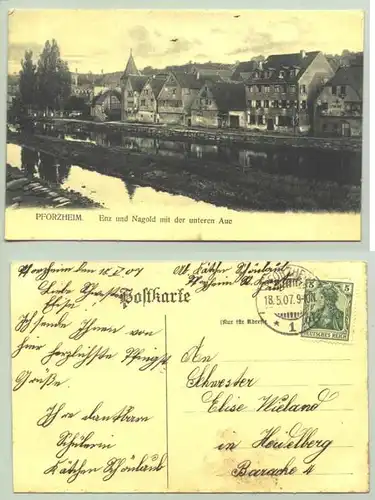 PFORZHEIM. Enz und Nagold mit der unteren Aue
Pforzheim den 18. V. 07
Postkarte
(Nur für Adresse)
PFORZHEIM
18.5.07. 9-10N.
* 1
5 5
DEUTSCHES REICH
Liebe Schwester
Elise
Ich sende Ihnen von
hier herzlichste Pfingst
Grüße.
Ihre dankbare
Schülerin
Käthchen Schönlaub
Abs. Käthchen Schönlaub
Pforzheim
An
Schwester
Elise Wieland
in Heidelberg
Baracke 4